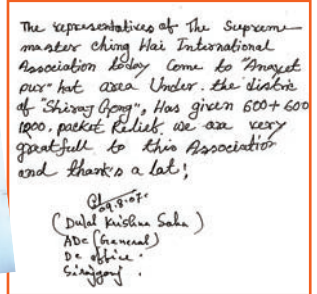 The representatives of The Supreme
master ching Hai International
Association today Come to "Anayet
pur" hat area Under. the distric
of "Shiraj Gong", Has given 600+600
1200. packet Relief. we are very
greatfull to this Association
and thank's a lot!
09.8.07.
(Dulal Krishna Saha)
ADC (General)
Dc office.
Sirajgonj.